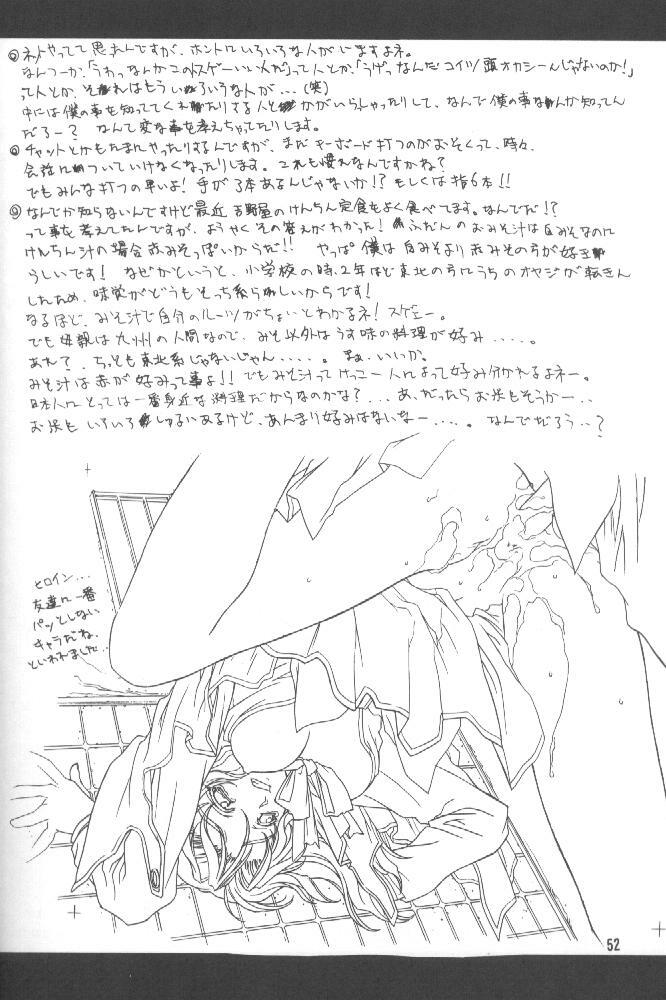 ◎ネットやってて思ったんですが、ホントにいろいろな人がいますよネ。
なんつーか、「うわっなんかこの人スゲーいい人だ」って人とか、「うげっなんだコイツ!頭オカシーんじゃないのか!」
って人とか、それはもういろいろな人が...(笑)
中には僕の事を知っててくれたりする人とかがいらしゃったりして、なんで僕の事なんか知ってん
だろー? なんて変な事を考えちゃったりします。
◎チャットとかもたまにやったりするんですが、まだキーボード打つのがおそくって、時々、
会話についていけなくなったりします。これも慣れなんですかね?
でもみんな打つの早いよ! 手が3本あるんじゃないか!? もしくは指6本!!
◎なんでか知らないんですけど最近吉野屋のけんちん定食をよく食べてます。なんでだ!?
って事を考えてたんですが、ようやくその答えがわかった! ふだんのおみそ汁は白みそなのに
けんちん汁の場合赤みそっぽいからだ!! やっぱ僕は白みそより赤みその方が好き
らしいです! なぜかというと、小学校の時、2年ほど東北の方にうちのオヤジが転きん
したため、味覚がどうもそっち系らしいからです!
なるほど、みそ汁で自分のルーツがちょいとわかるネ! スゲェー。
でも母親は九州の人間なので、みそ以外はうす味の料理が好み....。
あれ? ちっとも東北系じゃないじゃん....。まぁ、いいか。
みそ汁は赤が好みって事よ!! でもみそ汁ってけっこー人によって好み分かれるよネー。
日本人にとっては一番身近な料理だからなのかな?... あ、だったらお米もそうかー..
お米もいろいろしゅるいあるけど、あんまり好みはないなー....。なんでだろう..?
ヒロイン...
友達に一番
パッとしない
キャラだね、
といわれました..
52